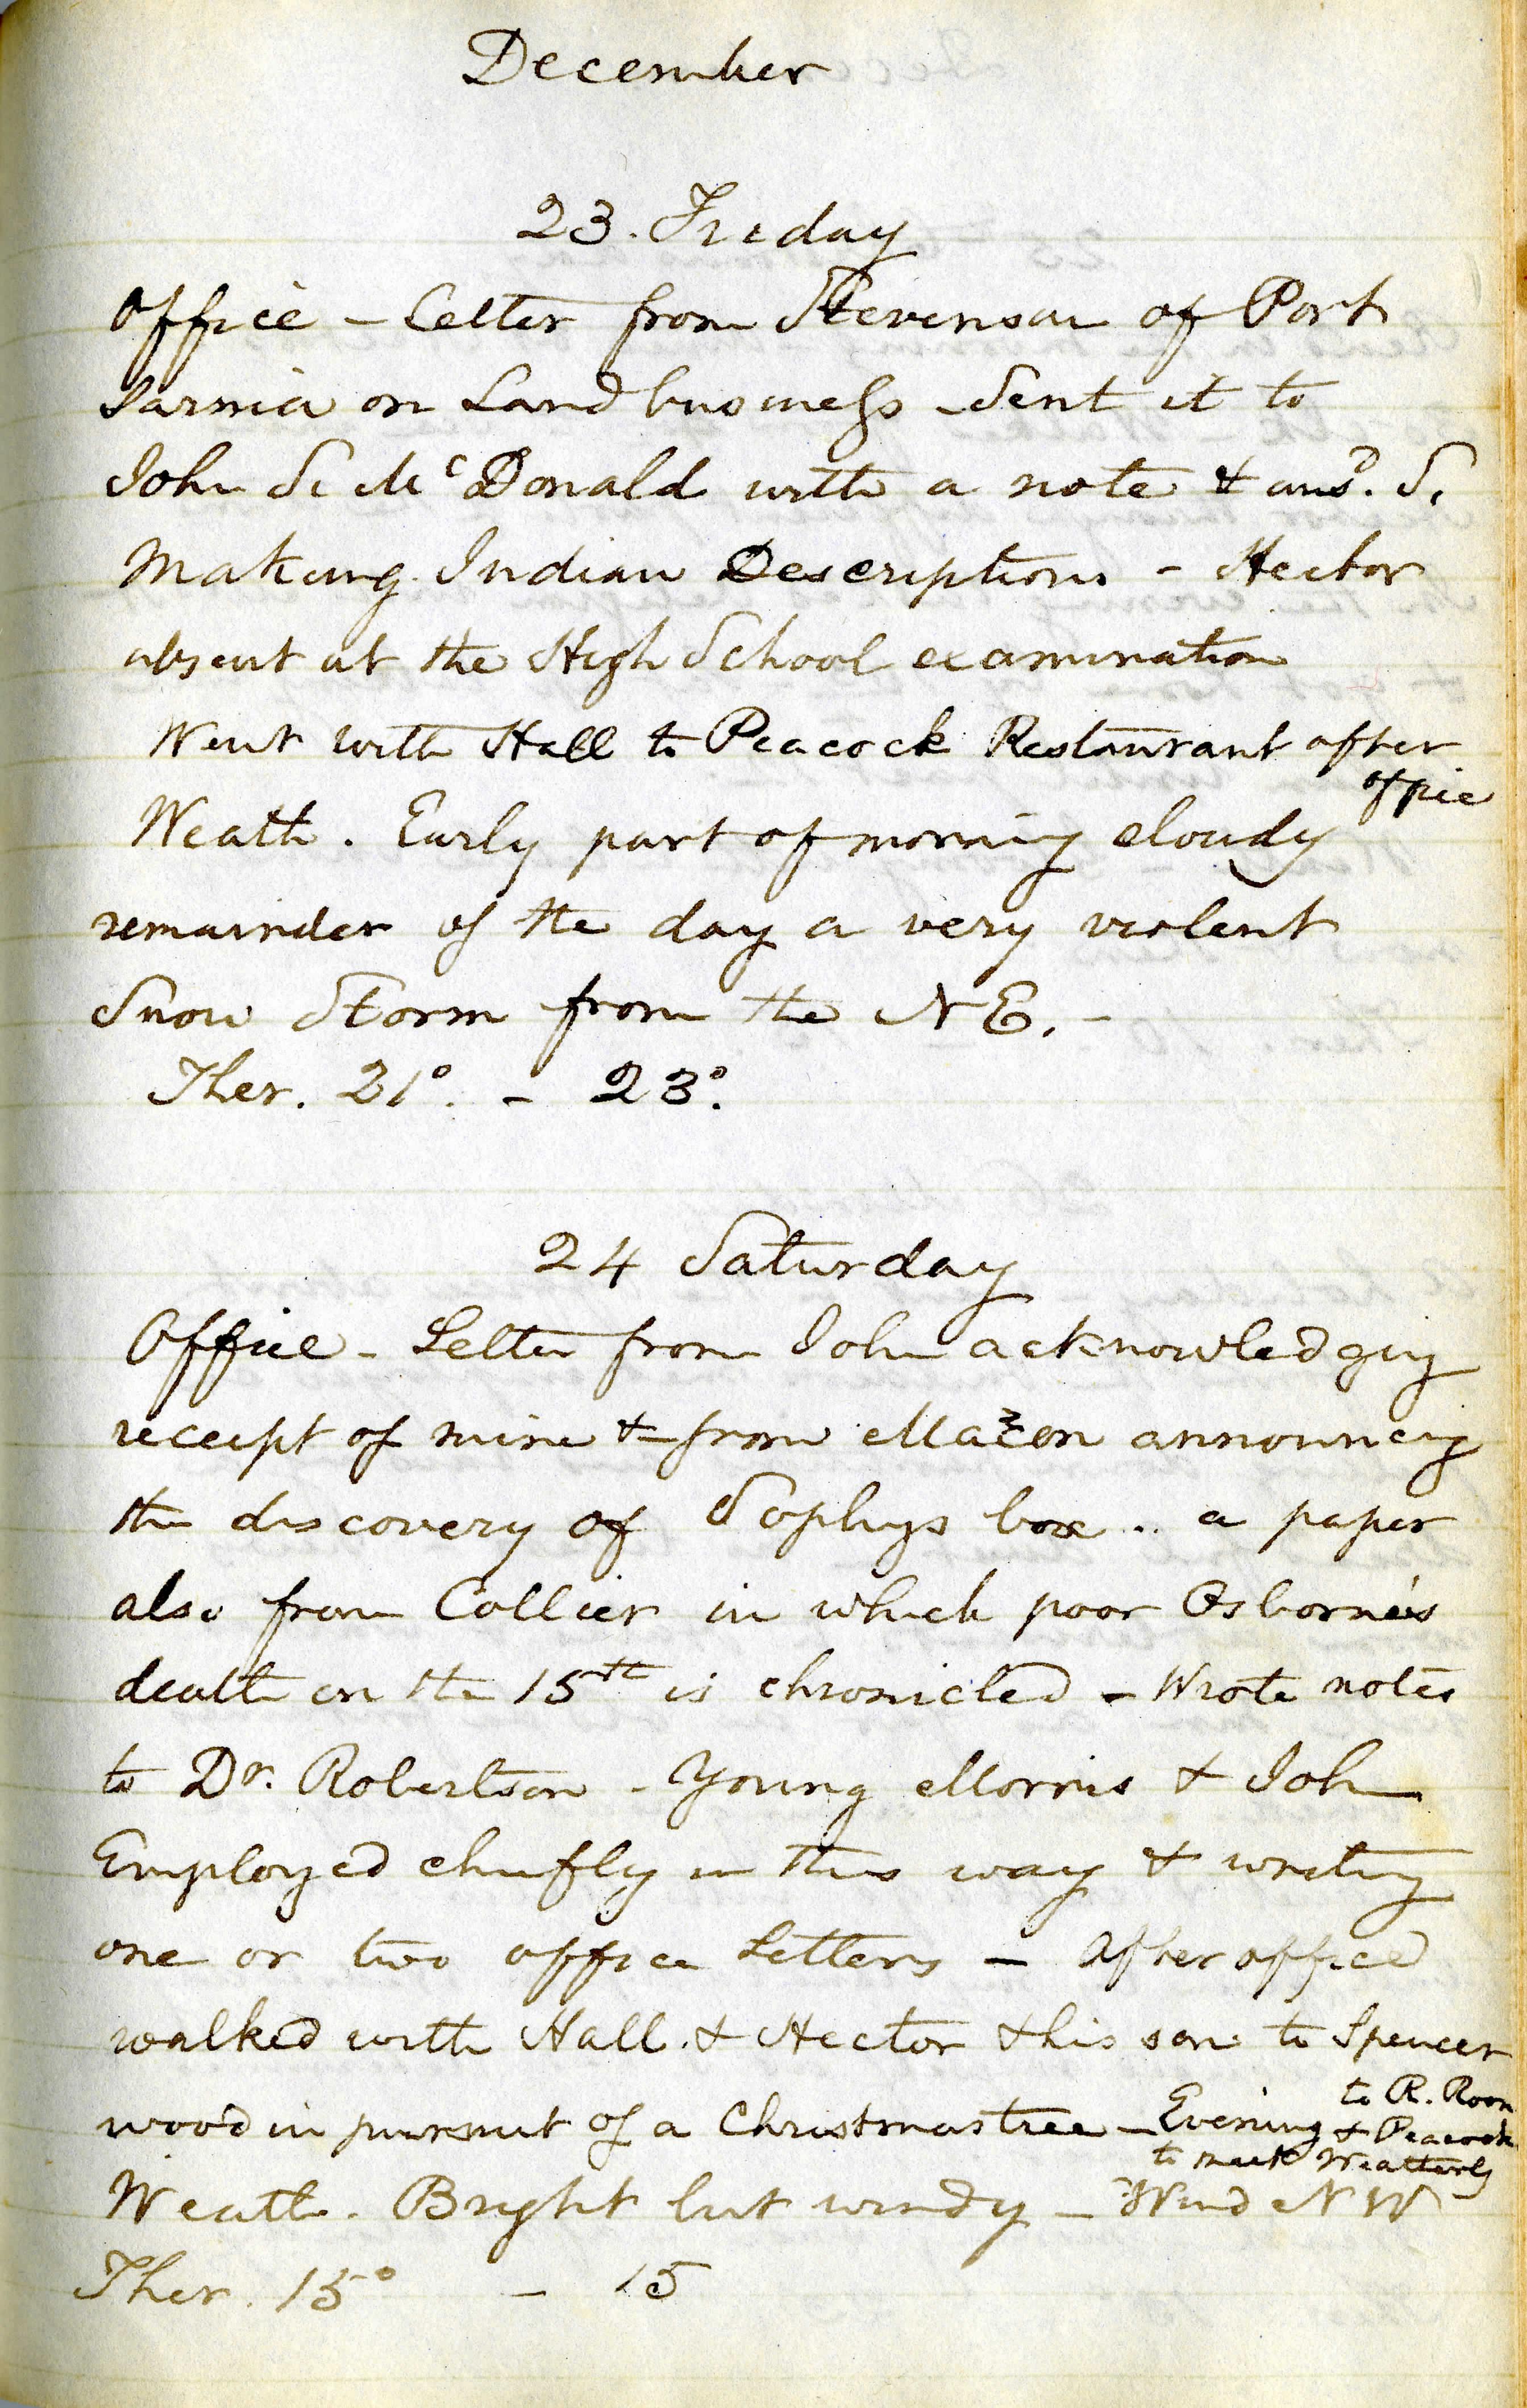 December
23. Friday
Office - Letter from Stevenson of Port
Sarnia on Land business - Sent it to
John S. McDonald with a note & ansd. S.
Making Indian Descriptions - Hector
absent at the High School examination
Went with Hall to Peacock Restaurant after
office
Weath. Early part of morning cloudy
remainder of the day a very violent
Snow Storm from the NE. -
Ther. 21°. - 23°.
24 Saturday
Office - Letter from John acknowledging
receipt of mine & from announcing
the discovery of Sophys box .. a paper
also from Collier in which poor Osborne's
death on the 15th is chronicled - Wrote notes
to Dr. Robertson - Young Morris & John
Employed chiefly in this way & writing
one or two office Letters - After office
walked with Hall & Hector & his son to Spencer
wood in pursuit of a Christmas tree - Evening
to R. Room
& Peacock
to meet Weatherly
Weath. Bright but windy - Wind NW
Ther. 15° - 15